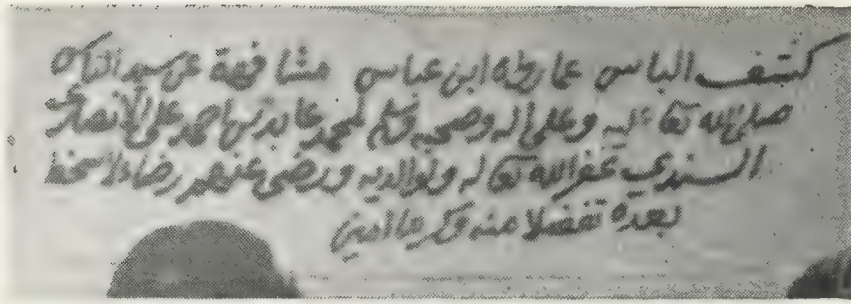 كشف الباس عما رواه ابن عباس مشافهة عن سيد الناس
صلى الله تعا عليه وعلى اله وصحبه وسلم لمحمد عابد بن احمد على الانصارى
السندي غفر الله تعا له ولوالديه ورضى عنهم رضاء لا سخط
بعده تفضلا منه وكرما امين